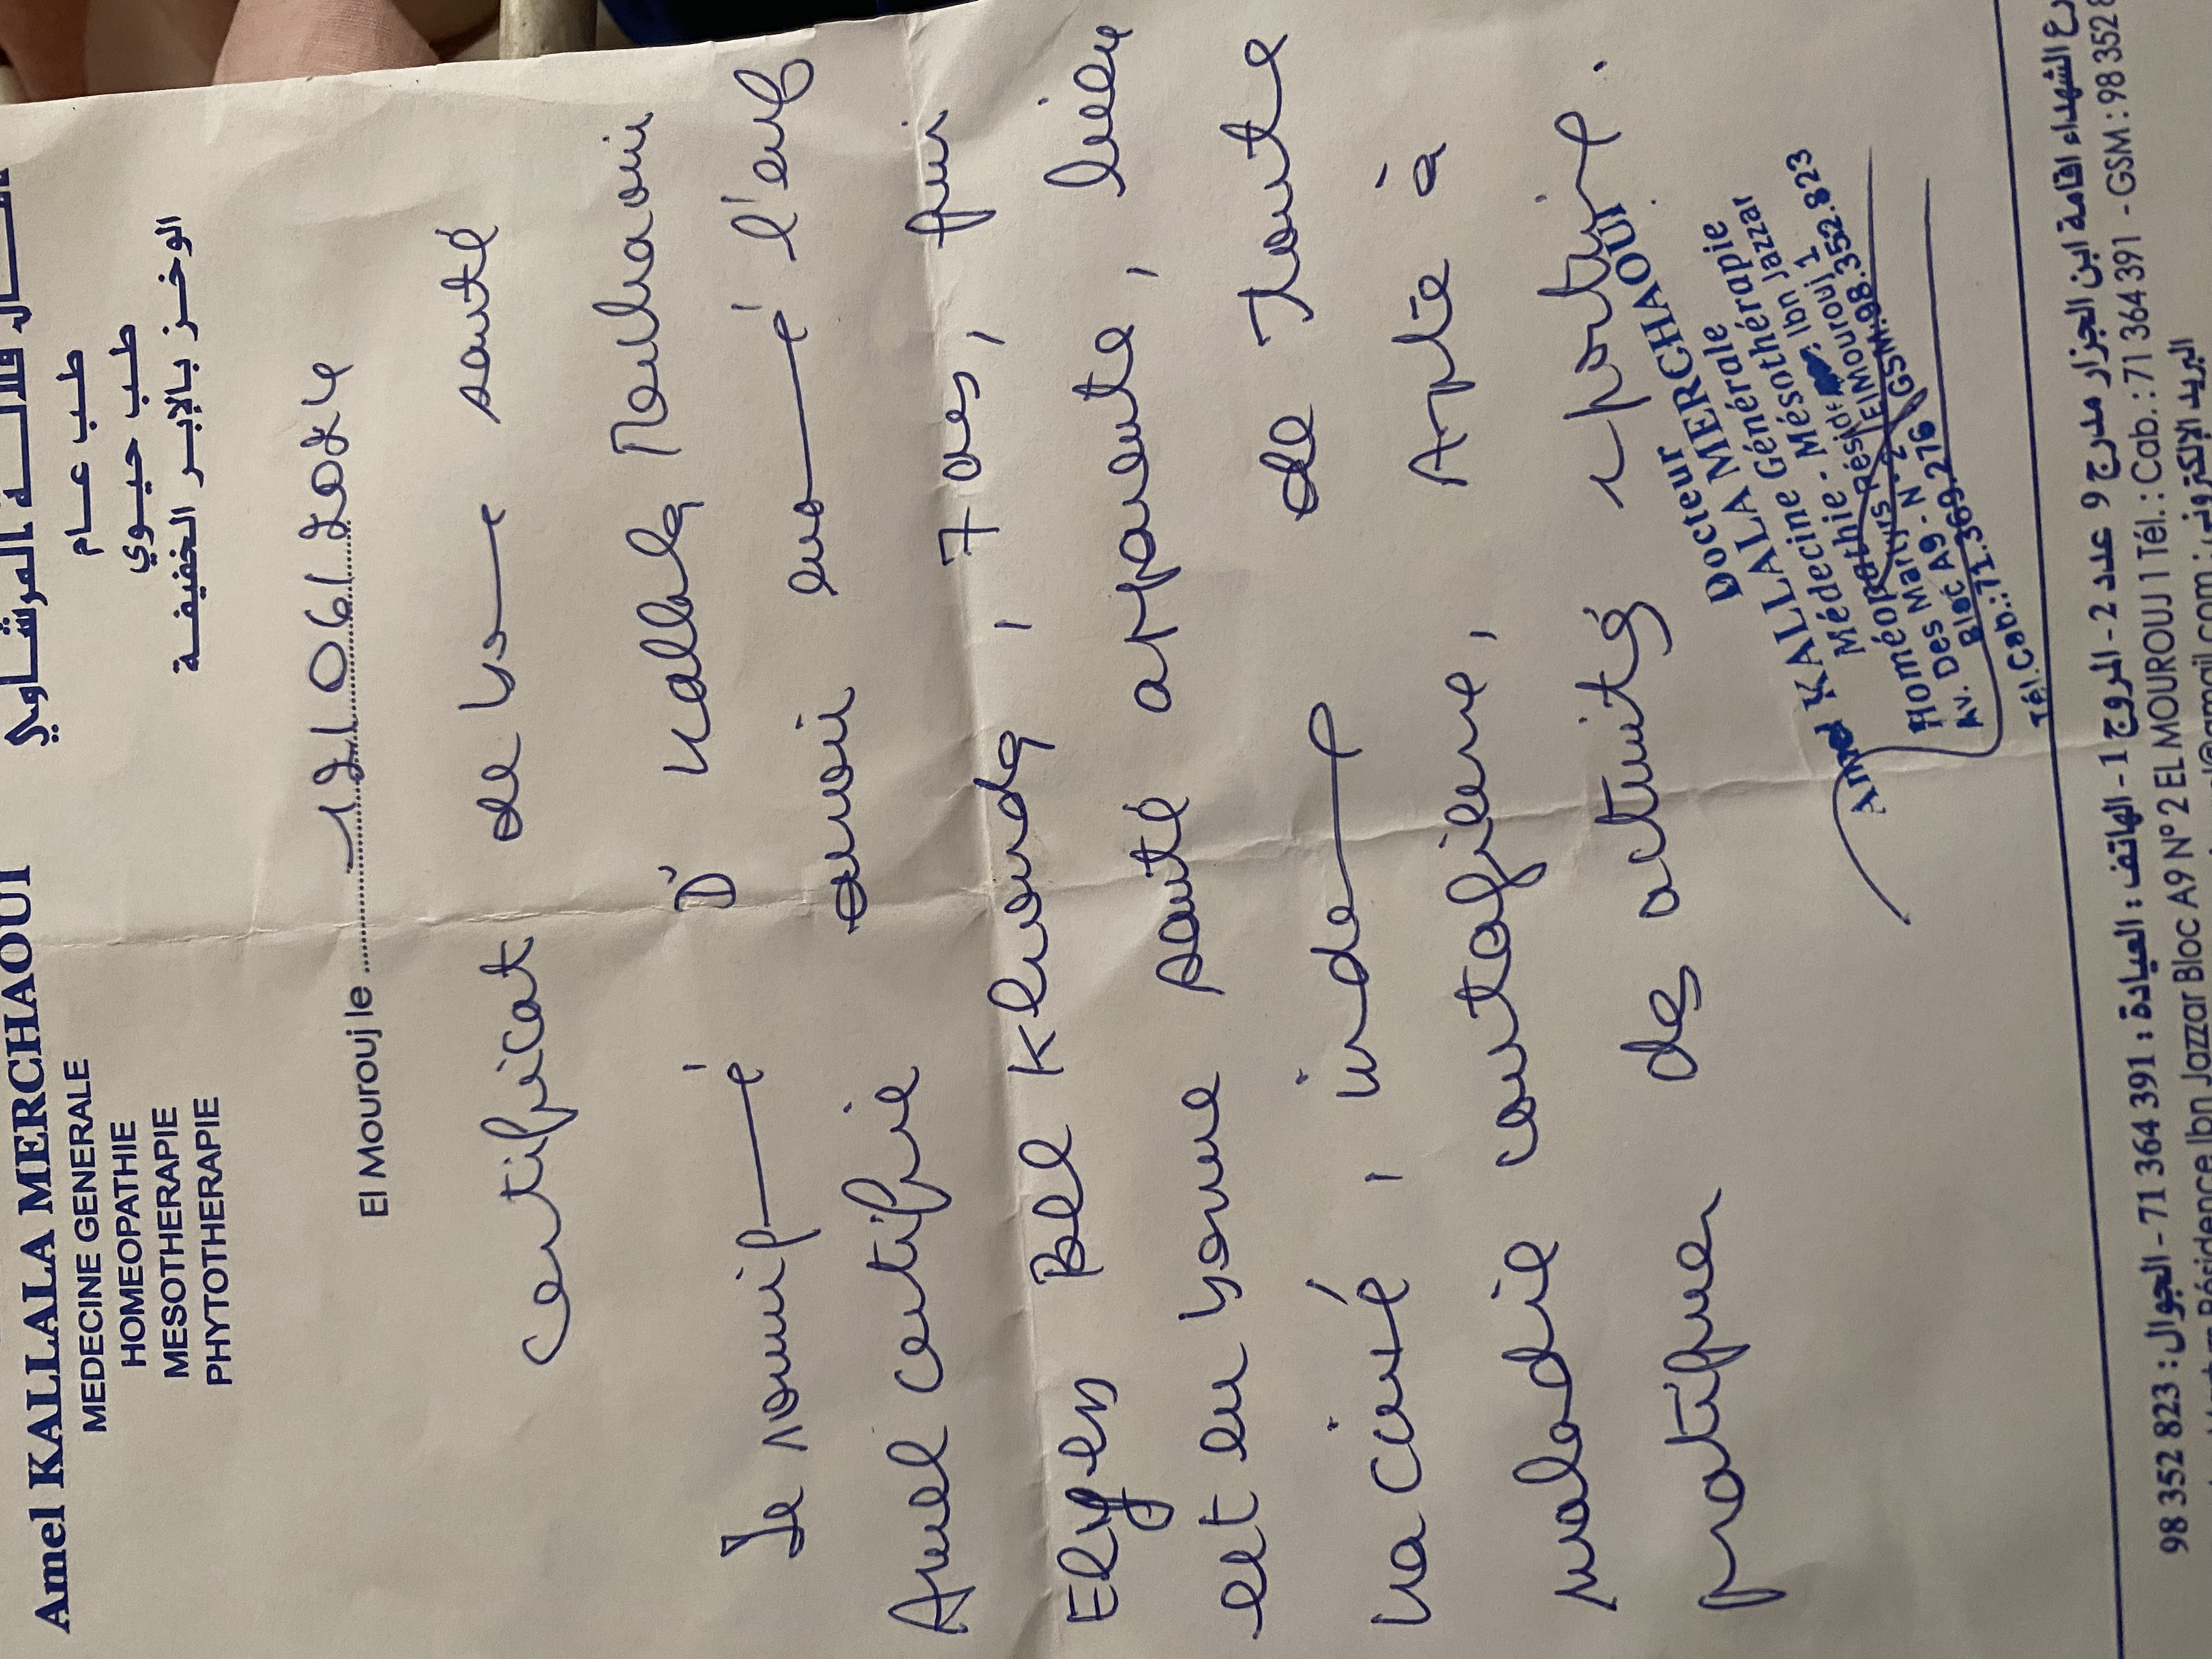 Amel KALLALA MERCHAOUI
MEDECINE GENERALE
HOMEOPATHIE
MESOTHERAPIE
PHYTOTHERAPIE
المرشاوي
طب عام
طب حيوي
الوخز بالإبر الخفيفة
El Mourouj le 12/06/2024
Certificat de bonne santé
Je soussigné, Dr Kallala Merchaoui
Amel certifie avoir examiné l'enf
Elyes Bel Khouda, 7 ans, qui
est en bonne santé apparente, bien
vacciné, indemne de toute
maladie contagieuse, Apte à
pratiquer des activités sportive.
Docteur
KALLALA MERCHAOUI
Amel
Médecine Générale
Homéopathie - Mésothérapie
Av. Des Martyrs Résidence Ibn Jazzar
Bloc A9 - N° 2 ElMourouj 1
Tél.Cab.:71.369.276 GSM:98.352.823
ع الشهداء اقامة ابن الجزار مدرج 9 عدد 2 - المروج 1 - الهاتف : العيادة : 391 364 71 - الجوال : 823 352 98
Résidence Ibn Jazzar Bloc A9 N° 2 EL MOUROUJ 1 Tél. : Cab. : 71 364 391 - GSM : 98 352 8
البريد الإلكتروني : @gmail.com